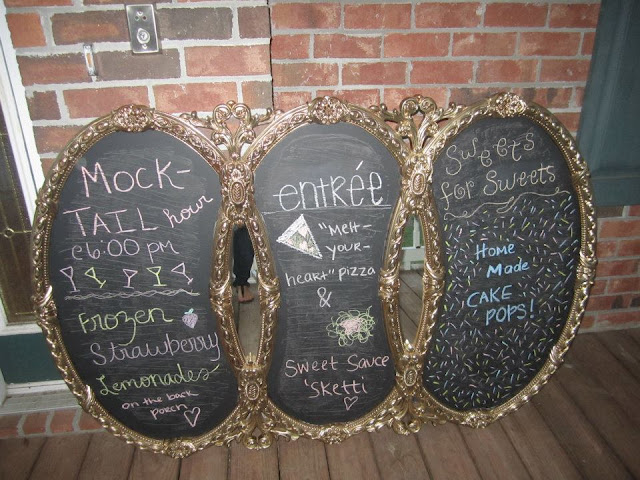 Mock-
TAIL hour
@6:00 pm
Frozen
Strawberry
Lemonades
on the back
porch
entrée
"Melt-
your-
heart" pizza
&
Sweet Sauce
'Sketti
Sweets
for Sweets
Home
Made
CAKE
POPS!